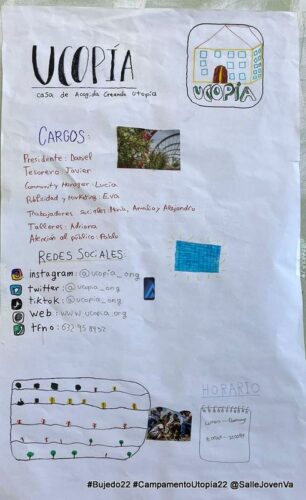 UCOPÍA
casa de Acogida Creando Utopía
UCOPÍA
CARGOS:
Presidente: Daniel
Tesorero: Javier
Community Manager: Lucía
Publicidad y Marketing: Eva
Trabajadores sociales: María, Amalia y Alejandro
Talleres: Adriana
Atención al público: Pablo
REDES SOCIALES:
instagram: @ucopia_ong
twitter: @ucopia_ong
tiktok: @ucopia_ong
web: www.ucopia.org
tfno: 632 45 8932
HORARIO
#Bujedo22 #CampamentoUtopia22 @SalleJovenVa